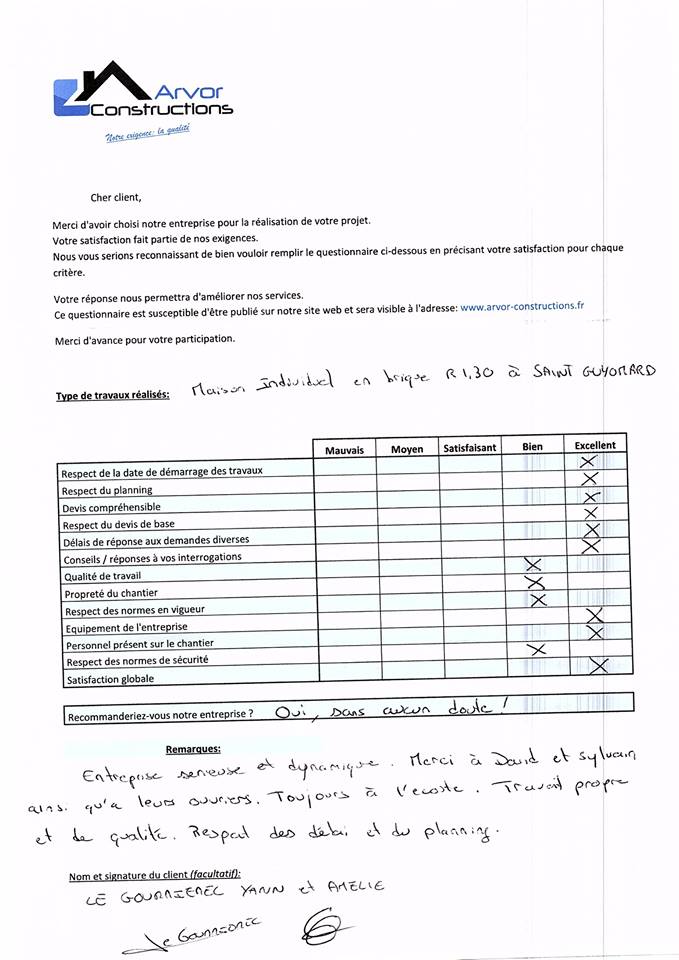 Arvor
Constructions
Notre exigence: la qualité
Cher client,
Merci d'avoir choisi notre entreprise pour la réalisation de votre projet.
Votre satisfaction fait partie de nos exigences.
Nous vous serions reconnaissant de bien vouloir remplir le questionnaire ci-dessous en précisant votre satisfaction pour chaque
critère.
Votre réponse nous permettra d'améliorer nos services.
Ce questionnaire est susceptible d'être publié sur notre site web et sera visible à l'adresse: www.arvor-constructions.fr
Merci d'avance pour votre participation.
Type de travaux réalisés: Maison Individuel en brique R 1,30 à SAINT GUYOMARD
Mauvais Moyen Satisfaisant Bien Excellent
Respect de la date de démarrage des travaux X
Respect du planning X
Devis compréhensible X
Respect du devis de base X
Délais de réponse aux demandes diverses X
Conseils / réponses à vos interrogations X
Qualité de travail X
Propreté du chantier X
Respect des normes en vigueur X
Equipement de l'entreprise X
Personnel présent sur le chantier X
Respect des normes de sécurité X
Satisfaction globale X
Recommanderiez-vous notre entreprise ? Oui, sans aucun doute !
Remarques:
Entreprise serieuse et dynamique. Merci à David et sylvain
ains. qu'a leurs ouvriers. Toujours à l'ecoute. Travail propre
et de qualité. Respect des délai et du planning.
Nom et signature du client (facultatif):
LE YANN et AMELIE